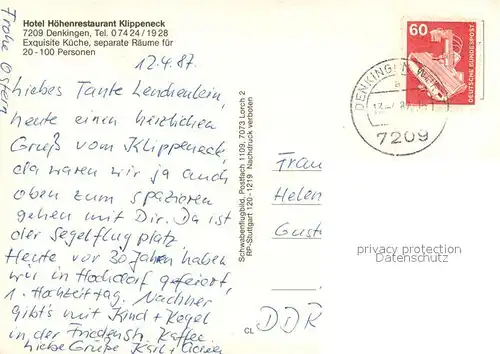 Frohe Ostern
Hotel Höhenrestaurant Klippeneck
7209 Denkingen, Tel. 0 74 24 / 19 28
Exquisite Küche, separate Räume für
20 - 100 Personen
12.4.87.
liebes Tante Lenchenlein,
heute einen herzlichen
Gruß vom Klippeneck,
da waren wir ja auch
oben zum spazieren
gehen mit Dir. Da ist
der Segelflugplatz
Heute vor 30 Jahren haben
wir in Hochdorf gefeiert,
1. Hochzeittag. Nachher
gibt's mit Kind + Kegel
in der Friedenstr. Kaffee.
liebe Grüße Karl +
Schwabenflugbild, Postfach 1109, 7073 Lorch 2
RP-Stuttgart 120 - 1219 Nachdruck verboten
60
DEUTSCHE BUNDESPOST
DENKINGEN
7209
Frau
Helen
Gust
DDR
privacy protection
Datenschutz